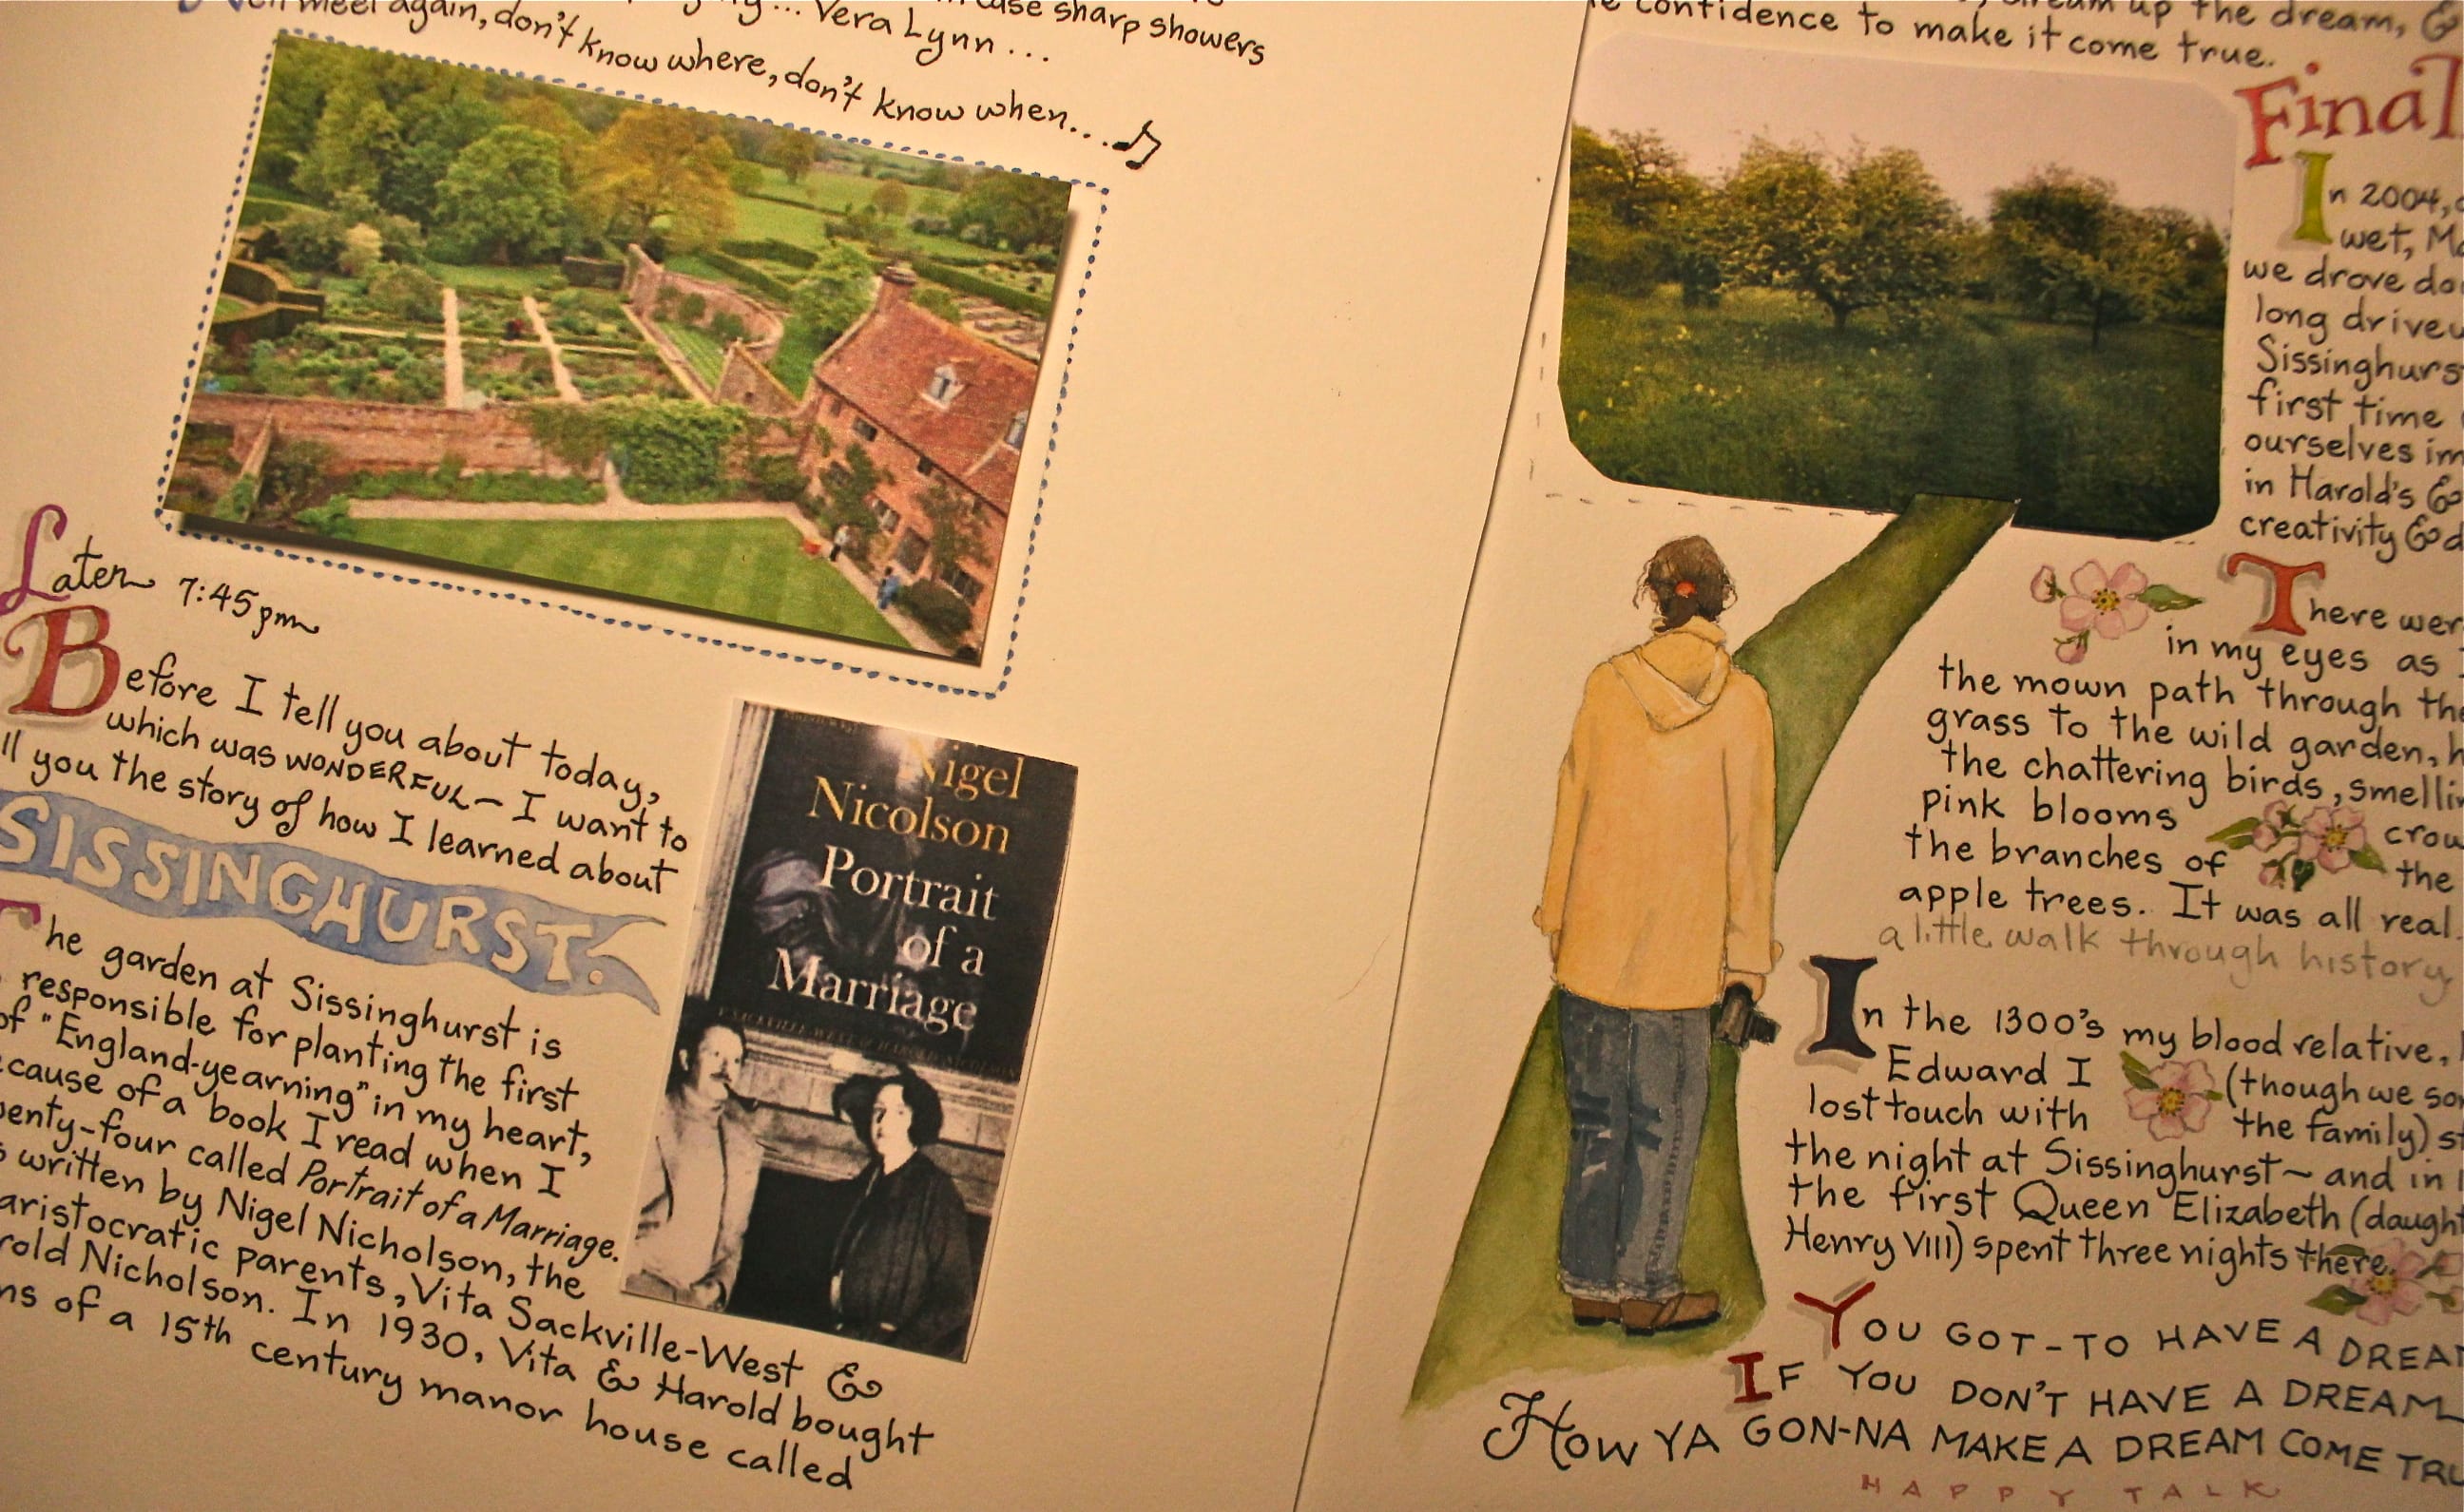 sharp showers
Vera Lynn...
meet again, don't know where, don't know when....
Later 7:45pm
Before I tell you about today,
which was WONDERFUL~ I want to
ll you the story of how I learned about
SISSINGHURST.
The garden at Sissinghurst is
responsible for planting the first
of "England-yearning" in my heart,
cause of a book I read when I
enty-four called Portrait of a Marriage.
s written by Nigel Nicholson, the
aristocratic parents, Vita Sackville-West &
rold Nicholson. In 1930, Vita & Harold bought
ns of a 15th century manor house called
Nigel
Nicolson
Portrait
of a
Marriage
V. SACKVILLE-WEST & HAROLD NICOLSON
dream up the dream, &
confidence to make it come true.
Final
In 2004,
wet, M
we drove do
long drivew
Sissinghurs
first time
ourselves im
in Harold's &
creativity & d
There wer
in my eyes as I
the mown path through the
grass to the wild garden, h
the chattering birds, smellin
pink blooms crow
the branches of the
apple trees. It was all real.
a little walk through history
In the 1300's my blood relative,
Edward I (though we so
lost touch with the family) st
the night at Sissinghurst~ and in
the first Queen Elizabeth (daught
Henry VIII) spent three nights there.
YOU GOT-TO HAVE A DREAM
IF YOU DON'T HAVE A DREAM
HOW YA GON-NA MAKE A DREAM COME TRU
HAPPY TALK